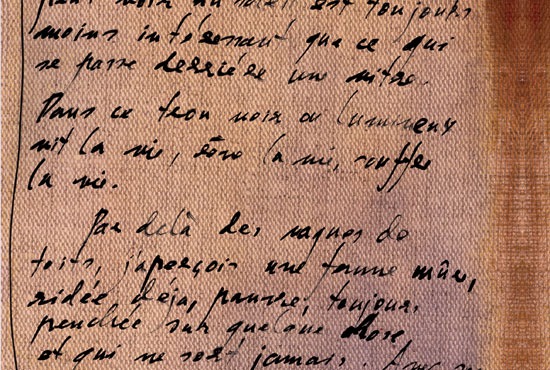 peut voir au soleil est toujours
moins intéressant que ce qui
se passe derrière une vitre.
Dans ce trou noir ou lumineux
vit la vie, rêve la vie, souffre
la vie.
Par delà des vagues de
toits, j'aperçois une femme mûre,
ridée déjà, pauvre, toujours
penchée sur quelque chose,
et qui ne sort jamais. Avec